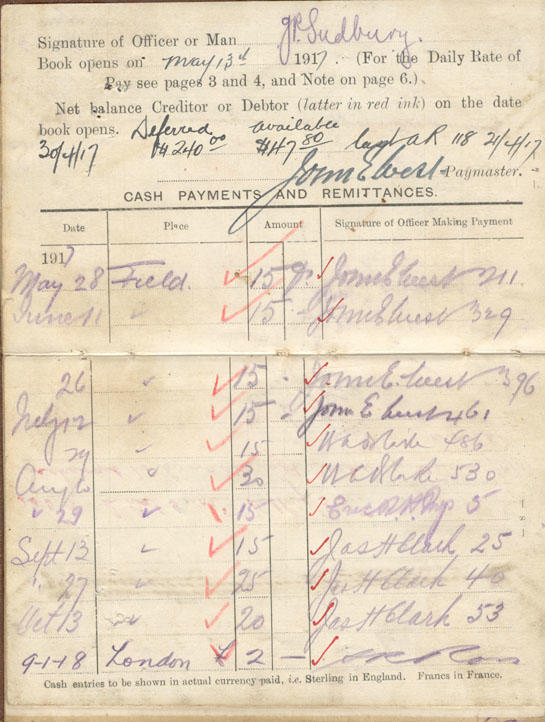 Signature of Officer or Man J.P. Sudbury.
Book opens on May 13th 1917. (For the Daily Rate of
Pay see pages 3 and 4, and Note on page 6.)
Net balance Creditor or Debtor (latter in red ink) on the date
book opens. Deferred available
30/4/17 $240.00 $47.80 last AR 118 21/4/17
John E West Paymaster.
CASH PAYMENTS AND REMITTANCES.
Date Place Amount Signature of Officer Making Payment
1917
May 28 Field. 15 John E West 211
June 11 " 15 - John E West 329
26 " 15 - John E West 396
July 12 " 15 John E West 461
29 " 15 486
Aug " 30 530
" 29 " 15 5
Sept 13 " 15 Jas H Clark 25
" 27 " 25 Jas H Clark 40
Oct 13 " 20 Jas H Clark 53
9-1-18 London £ 2 -
Cash entries to be shown in actual currency paid, i.e. Sterling in England. Francs in France.